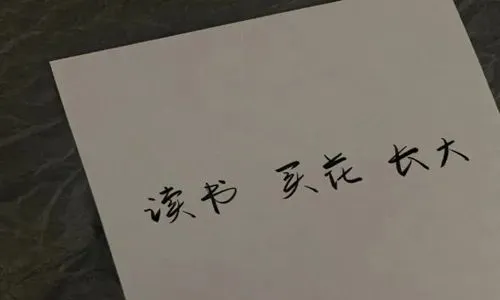 读书 买花 长大